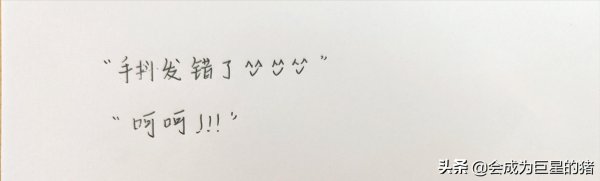 “手抖发错了^^ ^^ ^^”
“呵呵!!!”
头条 @会成为巨星的猪